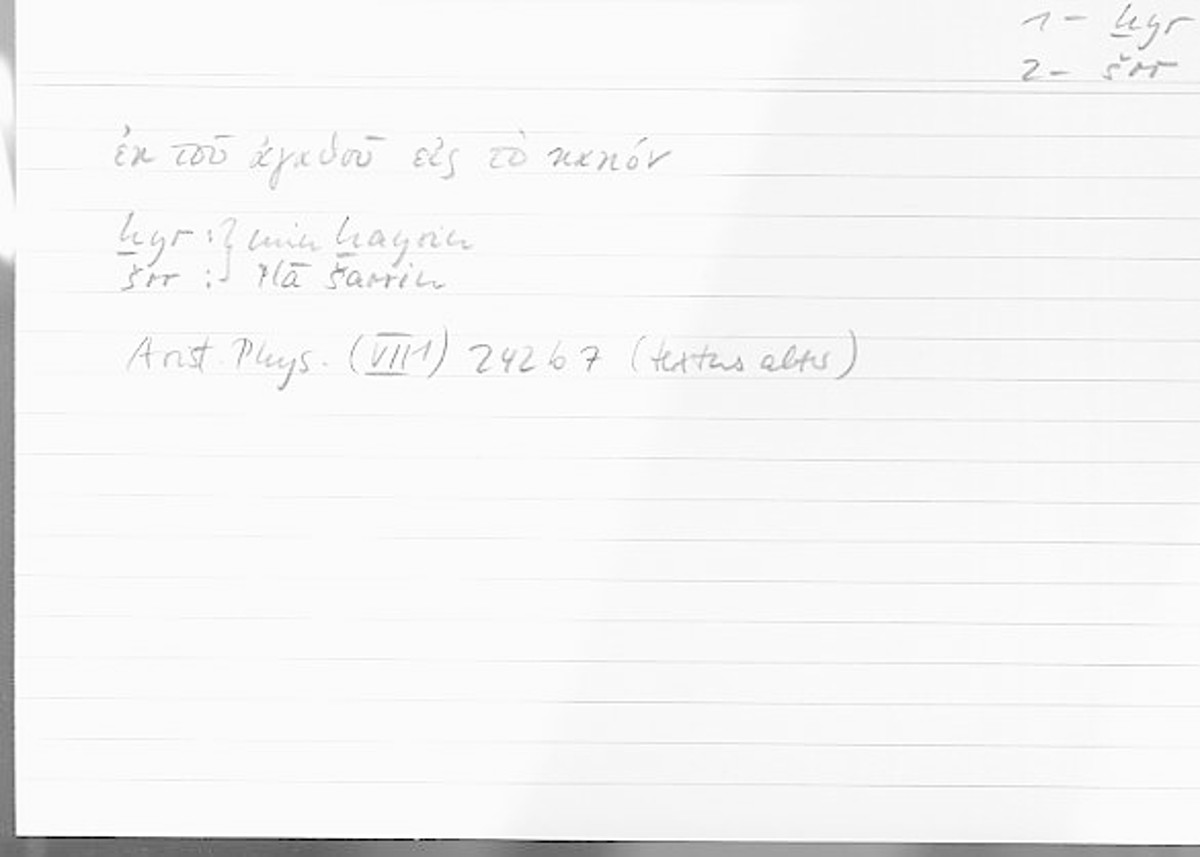 1 - ḫyr
2 - šrr
ἐκ τοῦ ἀγαθοῦ εἰς τὸ κακόν
ḫyr :} min ḫayrin
šrr :} ʾilā šarrin
Arist. Phys. (VII 1) 242 b 7 (textus alter)